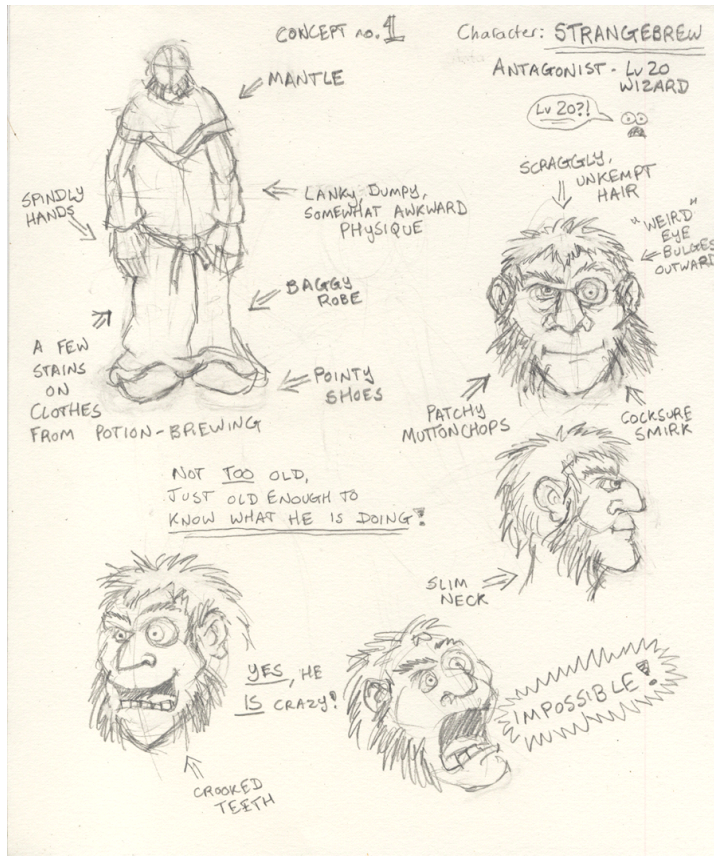 CONCEPT no. 1
Character: STRANGEBREW
ANTAGONIST - Lv 20
WIZARD
Lv 20?!
MANTLE
SPINDLY
HANDS
LANKY, DUMPY,
SOMEWHAT AWKWARD
PHYSIQUE
BAGGY
ROBE
A FEW
STAINS
ON
CLOTHES
FROM POTION-BREWING
POINTY
SHOES
SCRAGGLY,
UNKEMPT
HAIR
"WEIRD"
EYE
BULGES
OUTWARD
PATCHY
MUTTONCHOPS
COCKSURE
SMIRK
NOT TOO OLD,
JUST OLD ENOUGH TO
KNOW WHAT HE IS DOING!
SLIM
NECK
YES, HE
IS CRAZY!
CROOKED
TEETH
IMPOSSIBLE!